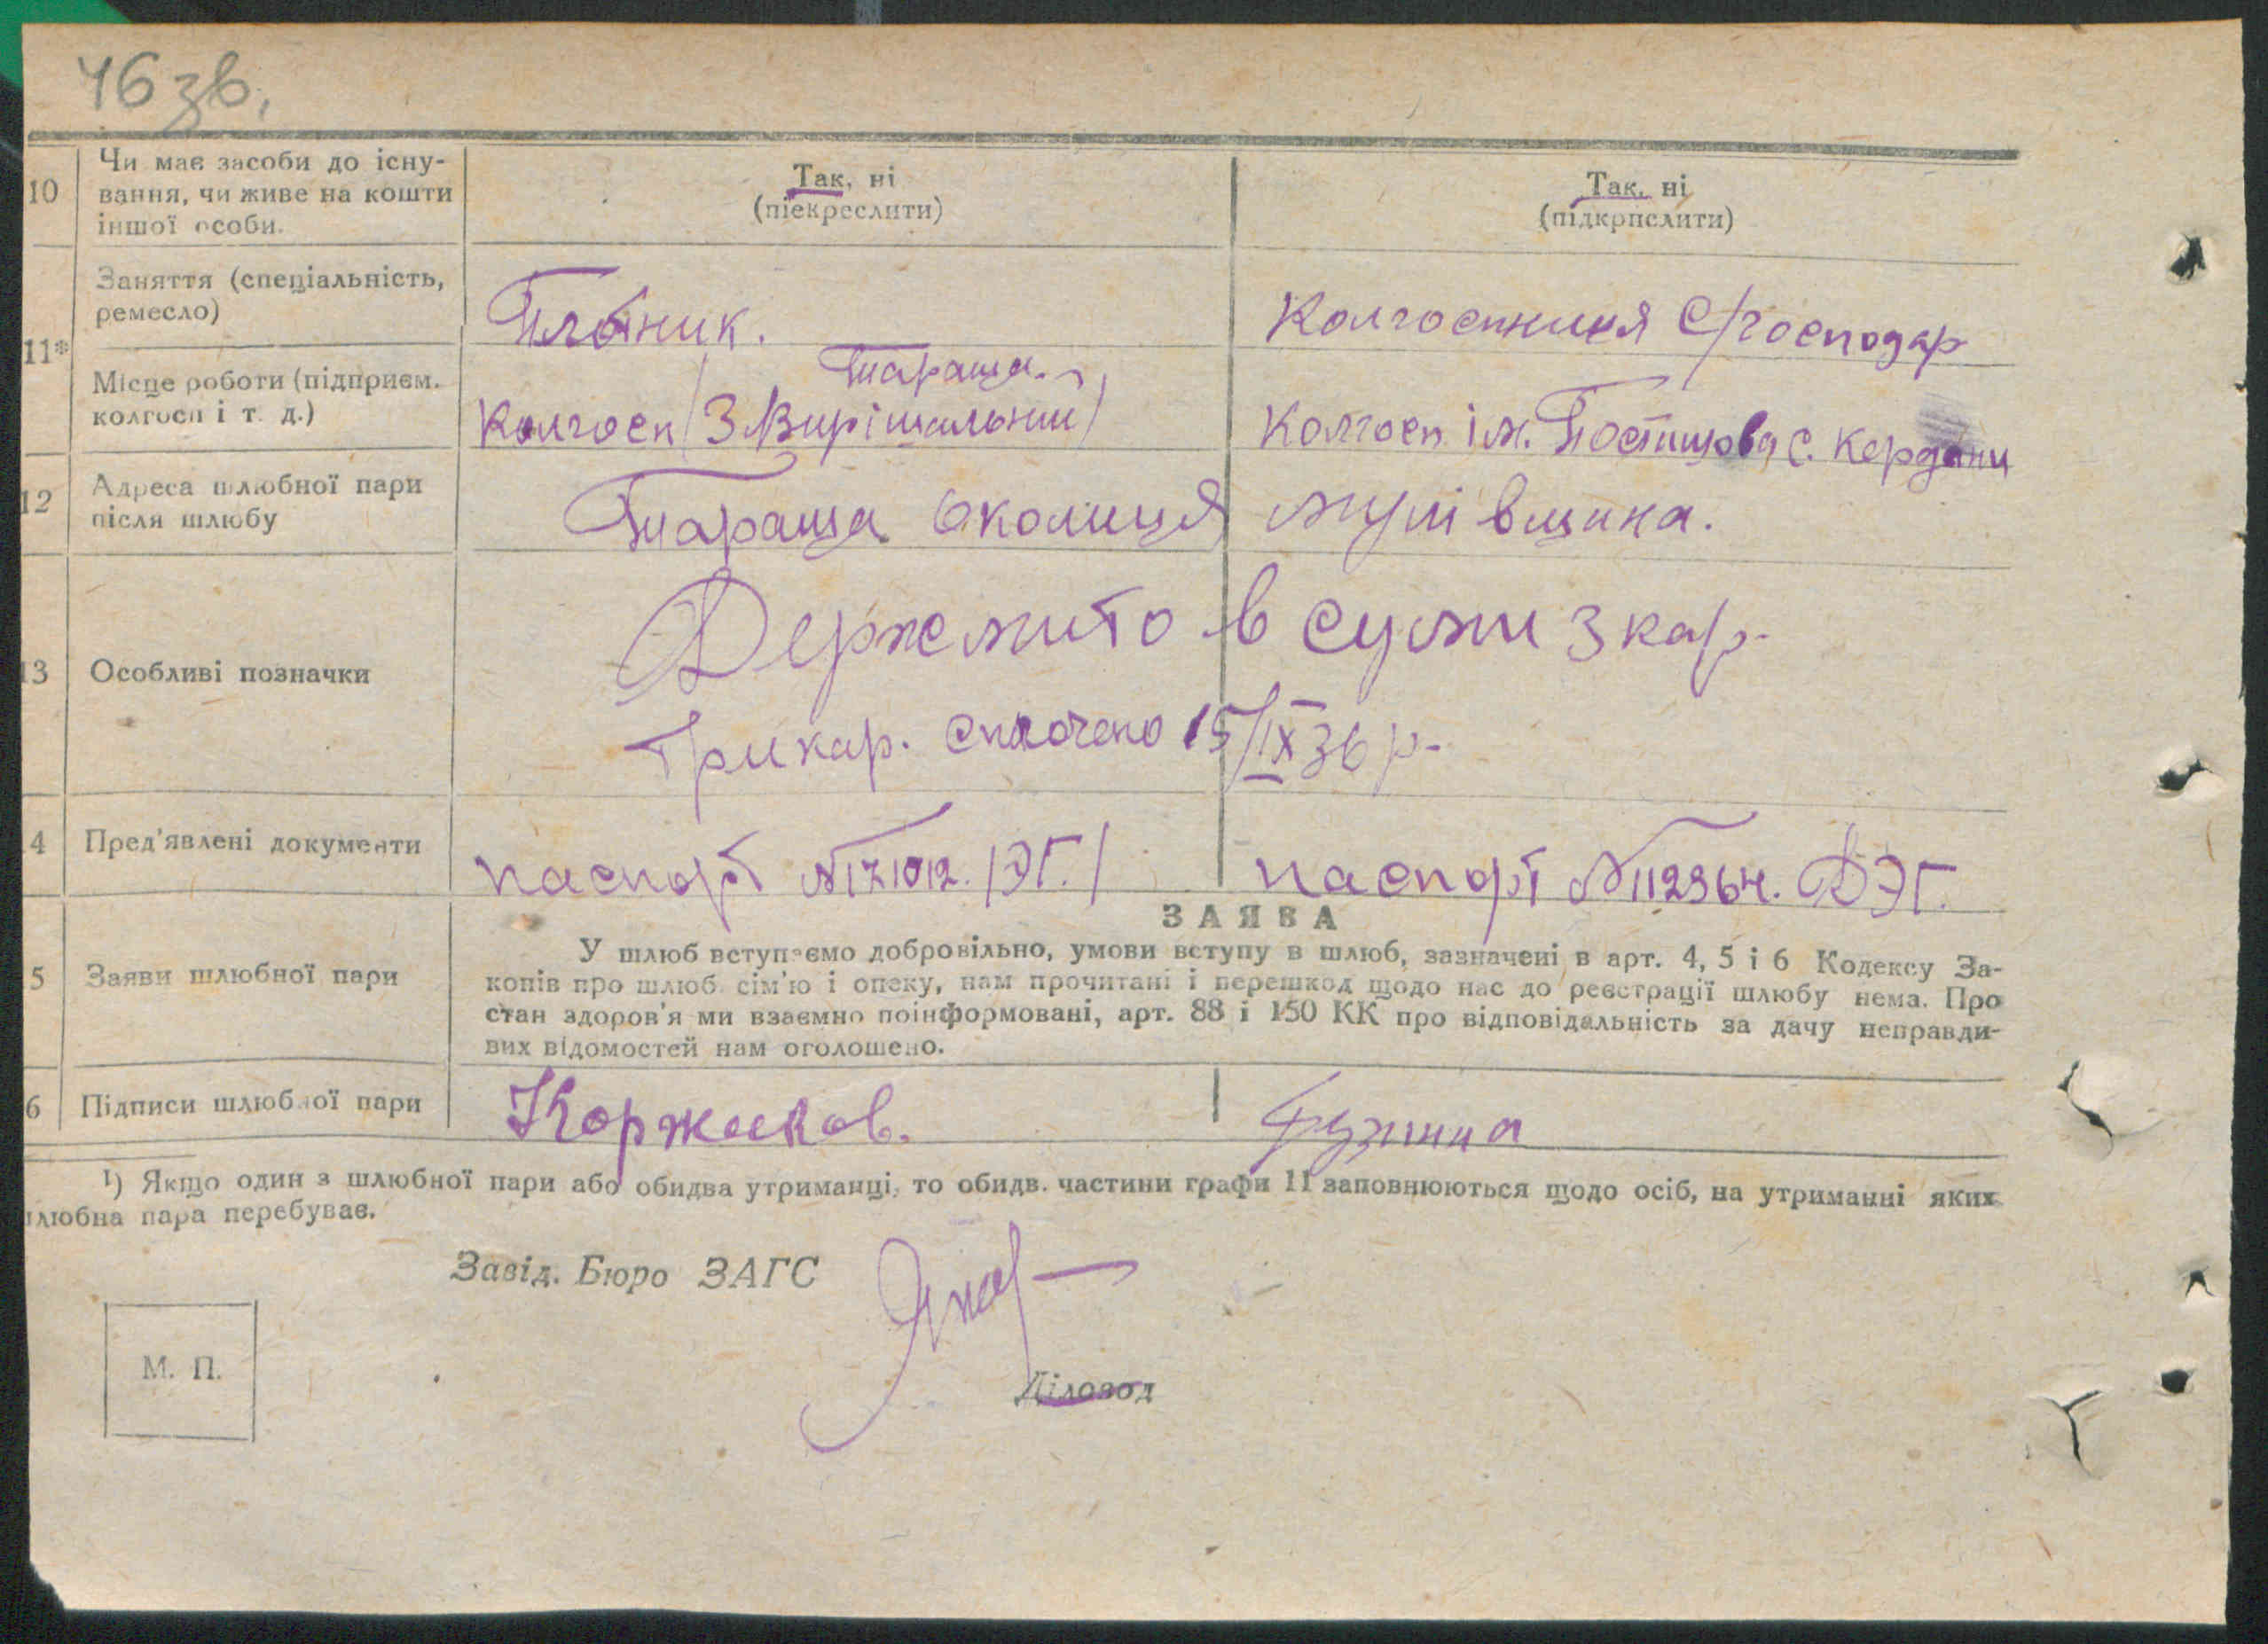 46 зв.
10
Чи має засоби до існу-
вання, чи живе на кошти
іншої особи.
Так, ні
(піекреслити)
Так, ні
(підкрислити)
11*
Заняття (спеціальність,
ремесло)
Колгоспниця С/господар
Місце роботи (підприєм.
колгосп і т. д.)
Тараща.
Колгосп (3 Вирішальний)
Колгосп ім. Постишова с. Кердани
12
Адреса шлюбної пари
після шлюбу
Тараща околиця
13
Особливі позначки
Держмито в сумі 3 кар.
Три кар. сплочено 15/IX 36 р.
4
Пред'явлені документи
паспорт № 171012. (ЭГ.)
паспорт № 112964. ДЭГ.
5
Заяви шлюбної пари
ЗАЯВА
У шлюб вступаємо добровільно, умови вступу в шлюб, зазначені в арт. 4, 5 і 6 Кодексу За-
конів про шлюб сім'ю і опеку, нам прочитані і перешкод щодо нас до реєстрації шлюбу нема. Про
стан здоров'я ми взаємно поінформовані, арт. 88 і 150 КК про відповідальність за дачу неправди-
вих відомостей нам оголошено.
6
Підписи шлюбної пари
¹) Якщо один з шлюбної пари або обидва утриманці, то обидв. частини графи 11 заповнюються щодо осіб, на утриманні яких
шлюбна пара перебуває.
Завід. Бюро ЗАГС
М. П.
Діловод